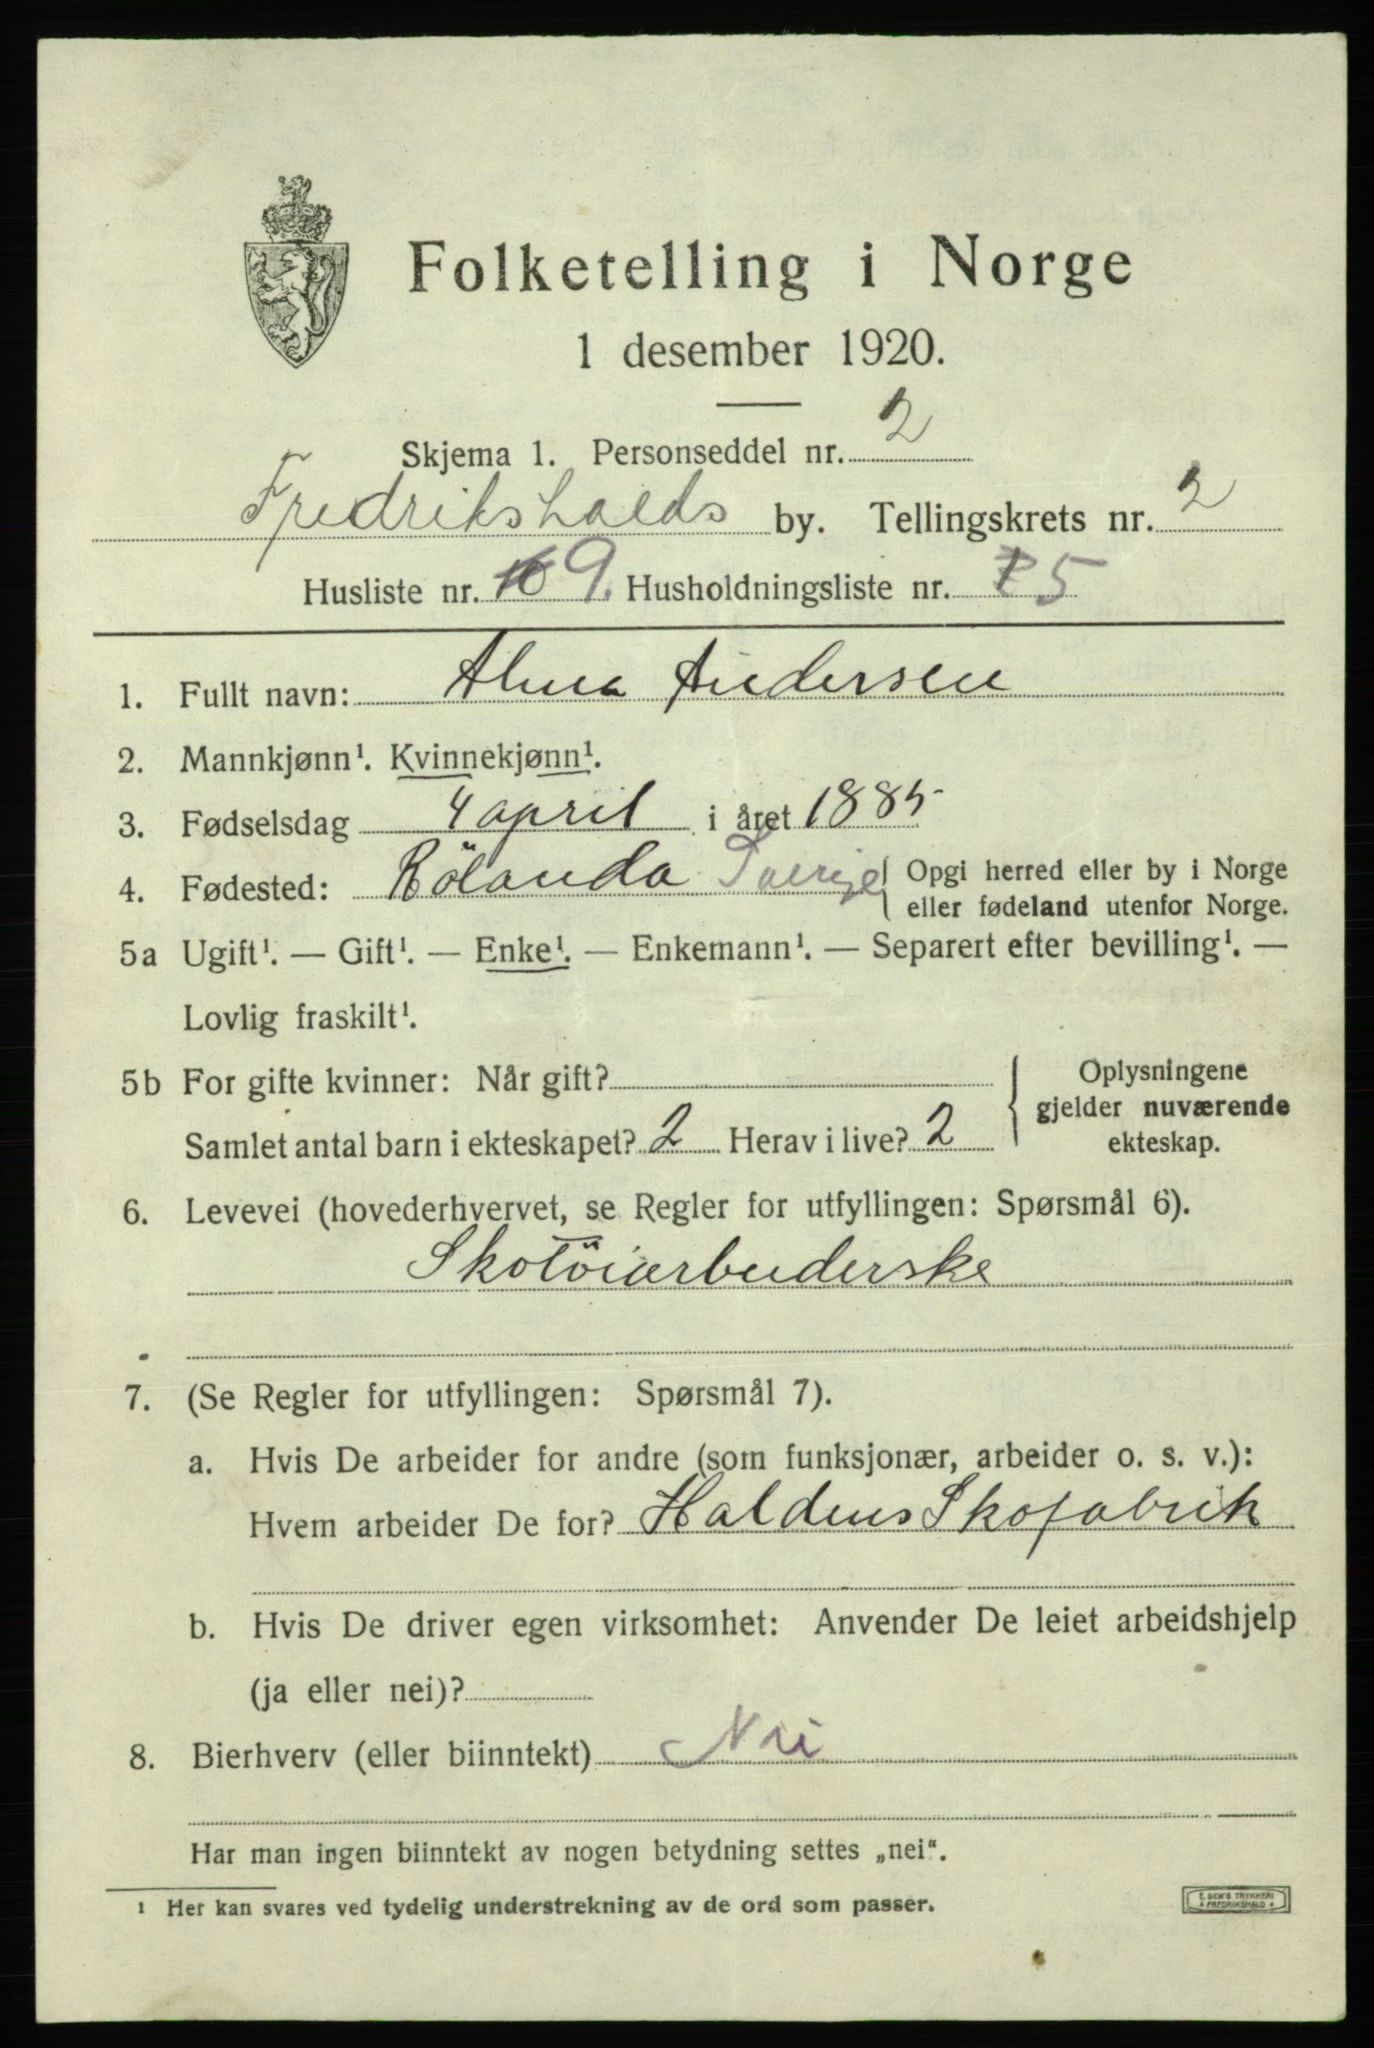 Folketelling i Norge
1 desember 1920.
Skjema 1. Personseddel nr. 2
Fredrikshalds by. Tellingskrets nr. 2
Husliste nr. 9. Husholdningsliste nr. 5
1. Fullt navn: Alma Andersen
2. Mannkjønn¹. Kvinnekjønn¹.
3. Fødselsdag 4 april i året 1885
4. Fødested: Rölanda Sverige { Opgi herred eller by i Norge
eller fødeland utenfor Norge.
5a Ugift¹. — Gift¹. — Enke¹. — Enkemann¹. — Separert efter bevilling¹. —
Lovlig fraskilt¹.
5b For gifte kvinner: Når gift?
Samlet antal barn i ekteskapet? 2 Herav i live? 2
{ Oplysningene
gjelder nuværende
ekteskap.
6. Levevei (hovederhvervet, se Regler for utfyllingen: Spørsmål 6).
Skotöiarbeiderske
7. (Se Regler for utfyllingen: Spørsmål 7).
a. Hvis De arbeider for andre (som funksjonær, arbeider o. s. v.):
Hvem arbeider De for? Haldens Skofabrik
b. Hvis De driver egen virksomhet: Anvender De leiet arbeidshjelp
(ja eller nei)?
8. Bierhverv (eller biinntekt) Nei
Har man ingen biinntekt av nogen betydning settes „nei“.
¹ Her kan svares ved tydelig understrekning av de ord som passer.
E. SEM'S TRYKKERI
* FREDRIKSHALD *